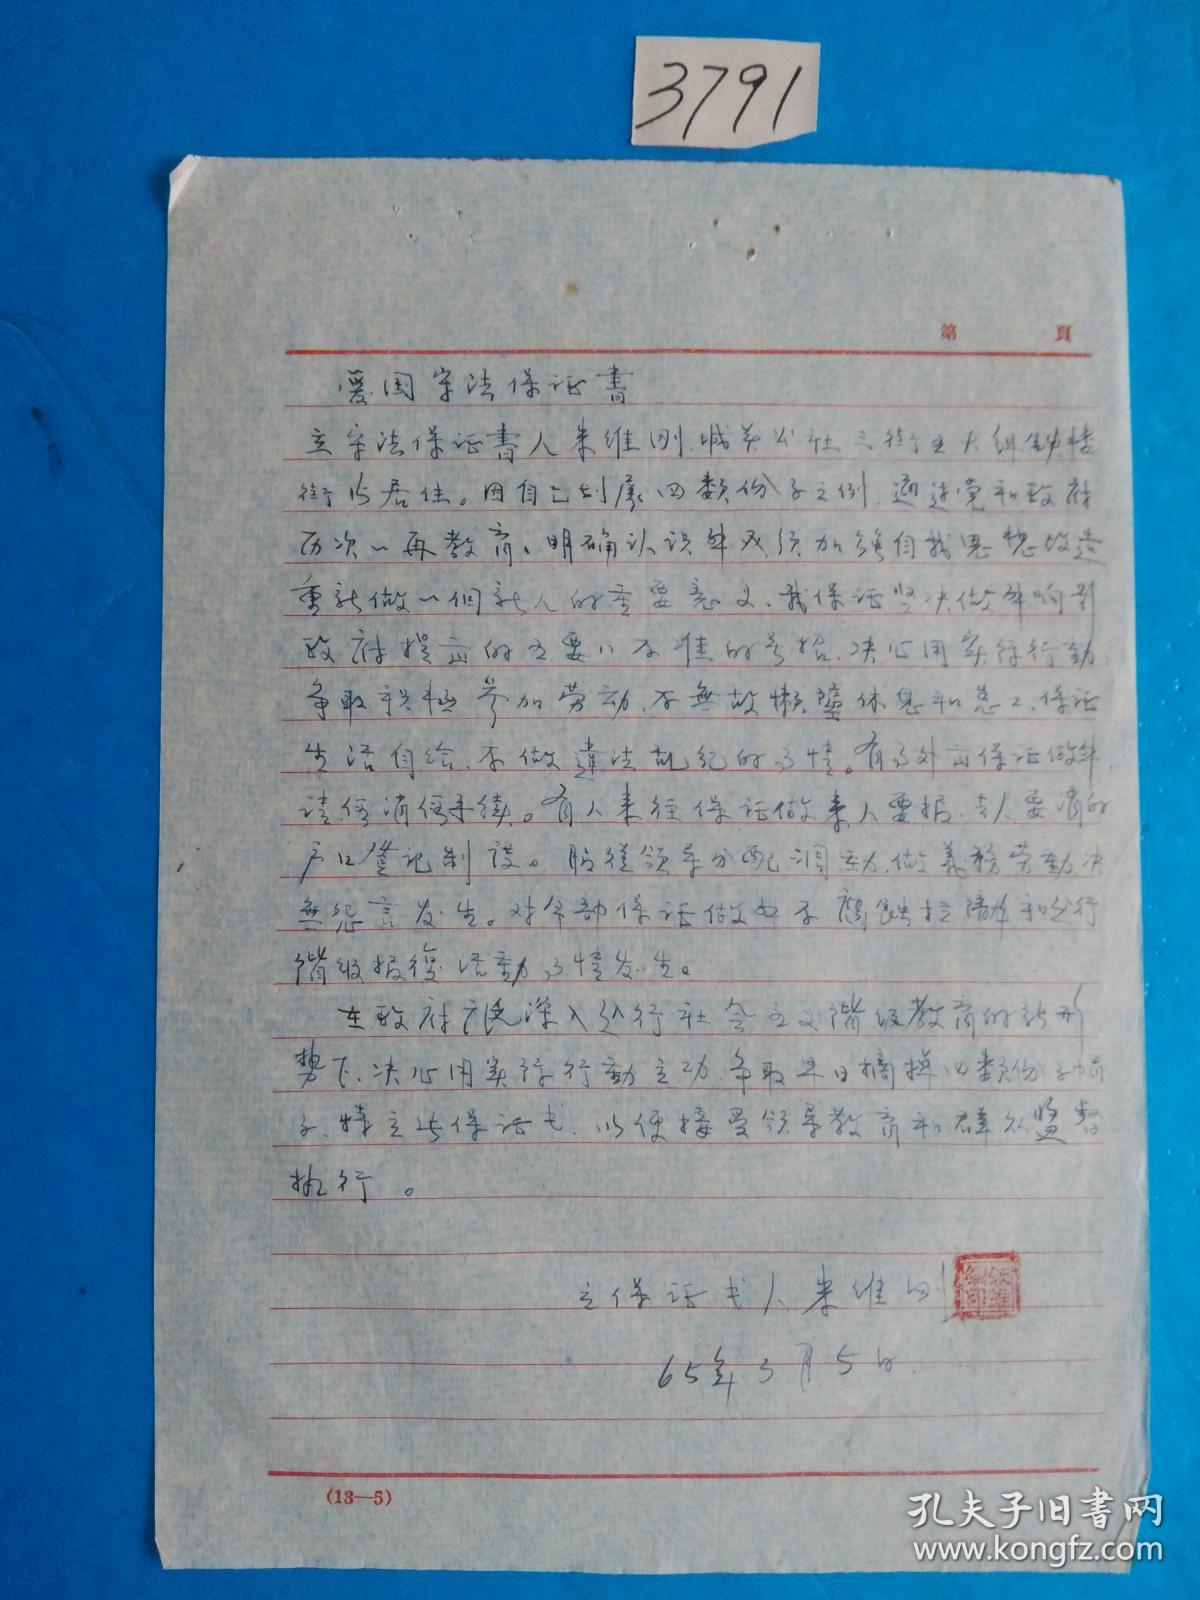 3791
第 頁
爱国守法保证書
立守法保证書人朱维刚.城关公社三街五大组鈡楼
街15居住。因自己划属四类份子之例.通过党和政府
历次一再教育、明确认识年必须加强自我思想改造
重新做一個新人的重要意义、我保证坚决做年响影
政府提出的五要八不准的号招.决心用实际行動.
争取积极参加劳动.不無故懒墮休息和怠工.保证
生活自给.不做違法乱纪的事情。有事外出保证做年.
请假消假手续。有人来往保证做来人要报.去人要消的
户口登记制度。服從领导分配调動.做義務劳動决
無怨言发生。对干部保证做如不腐蝕拉隴和進行
階级报復活動事情发生。
在政府廣泛深入進行社会主义階级教育的新形
势下.决心用实际行動主动.争取早日摘掉四类份子帽
子.特立此保证书.以便接受领导教育和群众监督
执行。
立保证书人朱维刚
65年3月5日.
(13—5)
孔夫子旧書网
www.kongfz.com